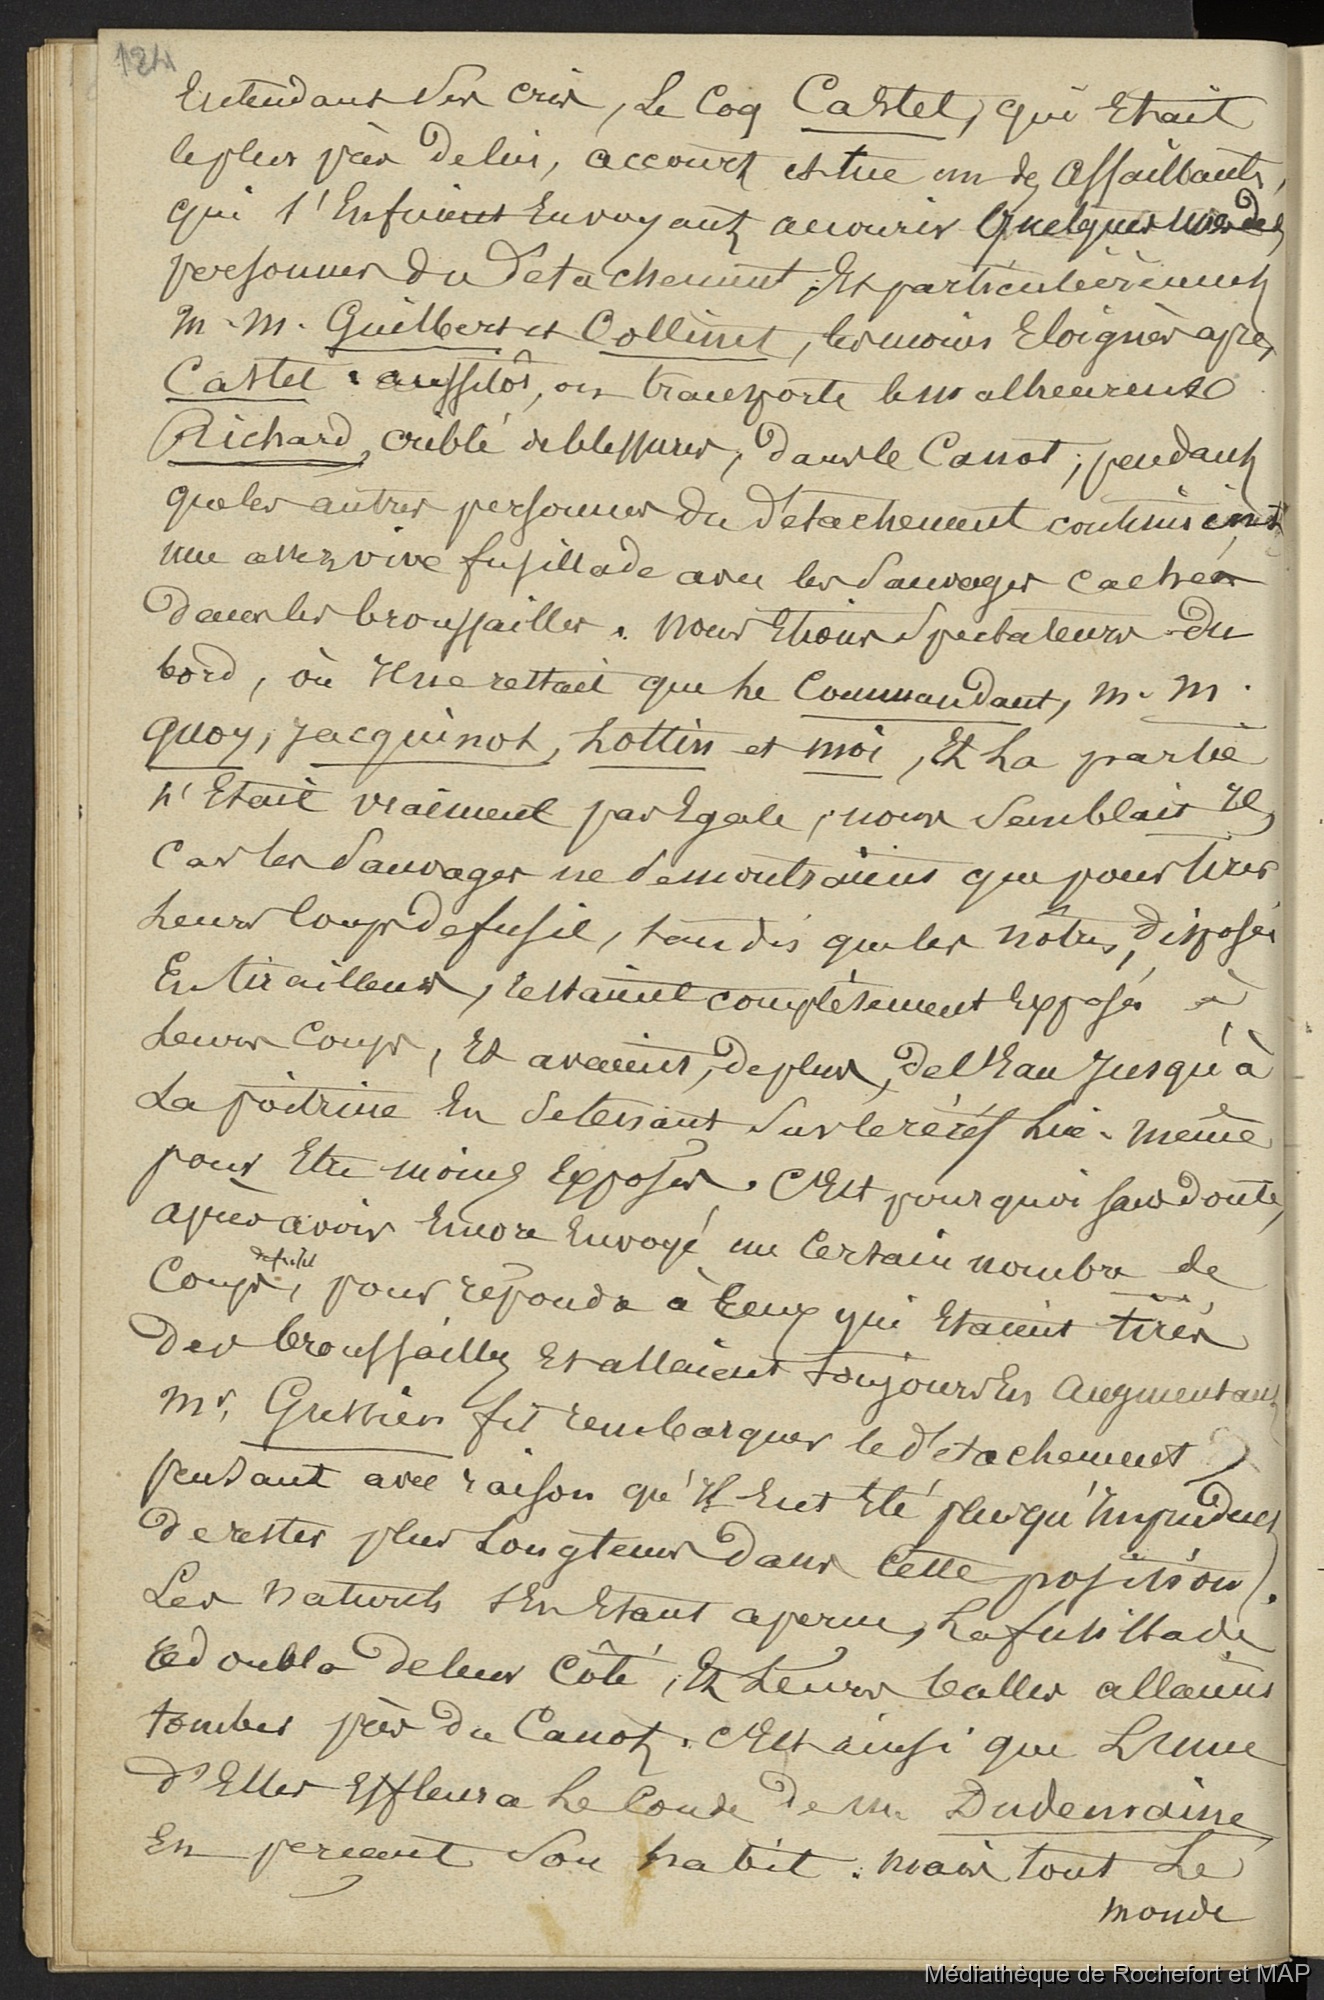 124
Entendant ses cris, Le Coq Castel, qui Etait
le plus près de lui, accourt et tue un des assaillants,
qui s'Enfuient En voyant accourir quelques unes des
personnes du Détachement, Et particulièrement
M. M. Guilbert et Collinet, les moins Eloignés après
Castel. aussitôt, on transporte le malheureux
Richard, criblé de blessures, dans le Canot, pendant
que les autres personnes du Détachement continuaient
une assez vive fusillade avec les Sauvages cachés
dans les broussailles. nous Etions Spectateurs du
bord, où Il ne restait que Le Commandant, M. M.
Quoy, Jacquinot, Lottin et moi, Et La partie
n'Etait vraiment pas Egale, nous Semblait Il,
Car les Sauvages ne Se montraient que pour tirer
Leurs Coups de fusil, tandis que les nôtres, disposés
En tirailleurs, restaient complètement Exposés à
Leurs Coups, Et avaient, de plus, de l'Eau Jusqu'à
La poitrine En Se tenant Sur le récif Lui-même
pour Etre moins Exposés. C'Est pourquoi sans doute,
après avoir Encore Envoyé un Certain nombre de
Coups de fusil, pour répondre à Ceux qui Etaient tirés
Des broussailles Et allaient toujours En augmentant
Mr. Gressien fit rembarquer le Détachement
pensant avec raison qu'Il Eut Eté plus qu'Imprudent
De rester plus Longtems Dans Cette position.
Les Naturels S'En Etant aperçu, La fusillade
redoubla de leur Côté, Et Leurs balles allaient
tomber près du Canot. C'Est ainsi que L'une
d'Elles Effleura Le Coude de M. Dudemaine
En perçant Son habit. mais tout Le
monde
Médiathèque de Rochefort et MAP